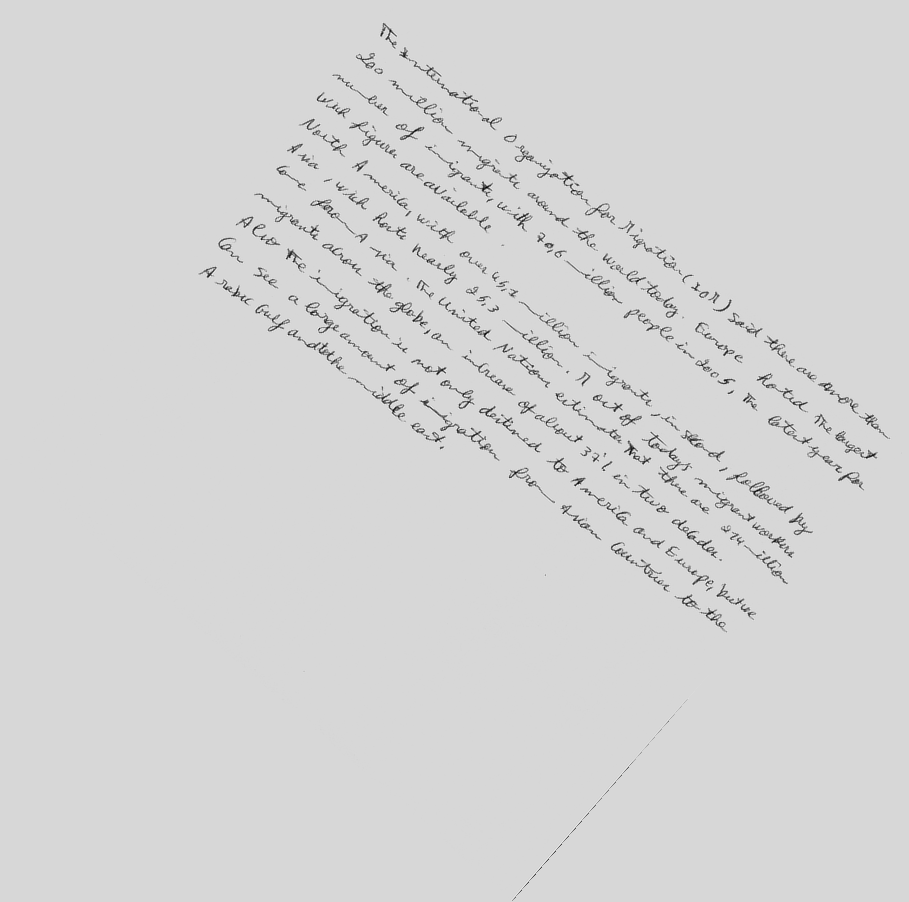 The International Organization for Migration (IOM) said there are more than
200 million migrants around the world today. Europe hosted The largest
number of imigrants, with 70,6 million people in 2005, The latest year for
Which figures are available.
North America, with over 45,1 million imigrants, is second, followed by
Asia, which hosts nearly 25,3 million. M out of todays migrant workers
Come from Asia. The United Nations estimates That there are 214 million
migrants across the globe, an increase of about 37% in two decades.
Also The imigration is not only destined to America and Europe, but we
Can see a large amount of imigration from Asian Countries to the
Arabic Gulf and to the middle east.